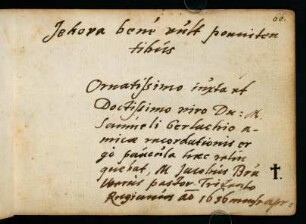 60.
Jehova beni vult poeniten
tibus
Ornatissimo iuxta et
Doctissimo viro Dn: M.
Samueli Gerlachio a-
micae recordationis er
go paucula haec relin
quebat, M. Jacobus
pastor
Regianus ao 1636 mense Apr.
†.